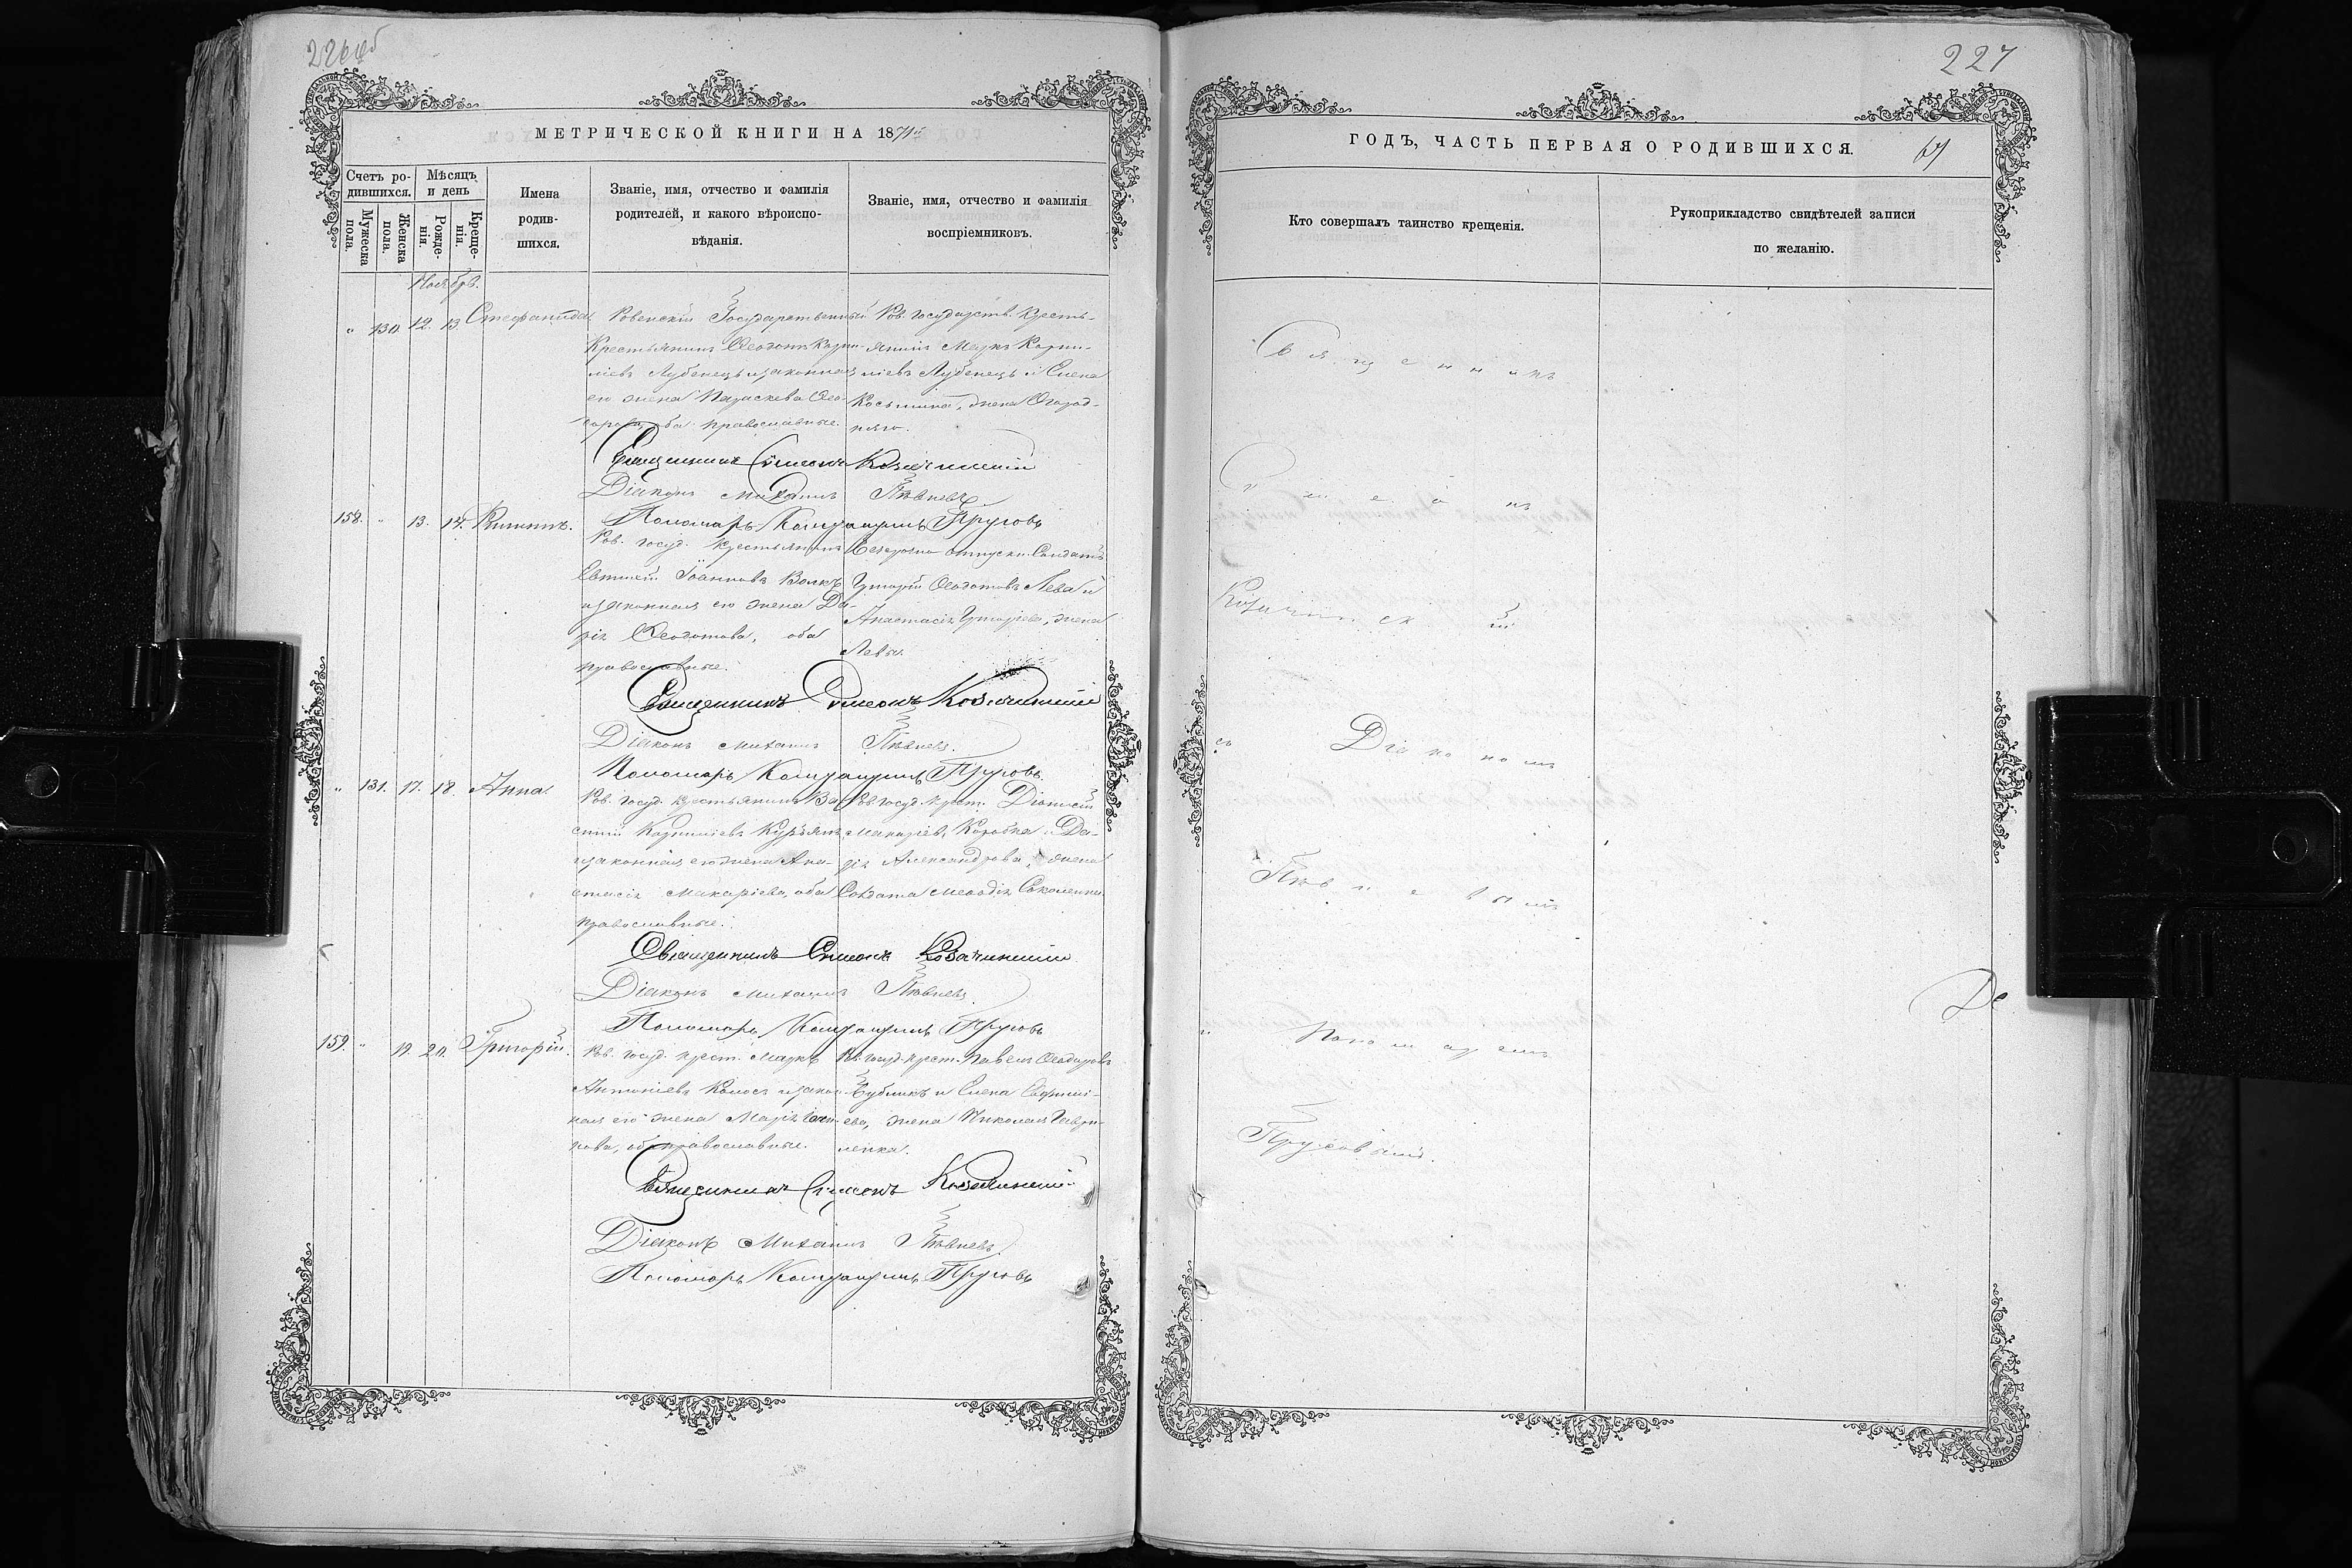 226об
МЕТРИЧЕСКОЙ КНИГИ НА 1871й
Счетъ ро-
дившихся.
Мужеска пола.
Женска пола.
Мѣсяцъ
и день
Рожде-
нія.
Креще-
нія.
Имена
родив-
шихся.
Званіе, имя, отчество и фамилія
родителей, и какого вѣроиспо-
вѣданія.
Званіе, имя, отчество и фамилія
воспріемниковъ.
Ноябрь.
" 130. 12. 13. Стефанида
Ровенскій Государственный
Крестьянинъ Ѳеодотъ Корни-
ліевъ Лубенецъ и законная
его жена Параскева Ѳео-
оба православные.
Ров. государств. Кресть-
янинъ Маркъ Корни-
ліевъ Лубенецъ и Елена
Косьмина, жена Огород-
няго.
Священникъ Симеонъ Козачинскій
Діаконъ Михаилъ Пѣвневъ
Пономарь Пруговъ
158. " 13. 14. Филиппъ.
Ров. госуд. Крестьянинъ
Евтихій Іоанновъ Волкъ
и законная его жена Да-
рія Ѳеодотова, оба
православные.
Безсрочно отпускн. Солдатъ
Григорій Ѳеодотовъ Лева и
Анастасія Григоріева, жена
Левы.
Священникъ Симеонъ Козачинскій
Діаконъ Михаилъ Пѣвневъ.
Пономарь Пруговъ
" 131. 17. 18. Анна.
Ров. госуд. крестьянинъ Ва-
силій Корниліевъ Курьянъ
и законная его жена Ана-
стасія Макаріева, оба
православные.
Ров. госуд. крест. Діонисій
Макаріевъ Коробка и Да-
рія Александрова, жена
Солдата
Священникъ Симеонъ Козачинскій
Діаконъ Михаилъ Пѣвневъ
Пономарь Пруговъ
159. " 19. 20. Григорій.
Ров. госуд. крест. Маркъ
Антоніевъ Колосъ и закон-
ная его жена Марія
оба православные.
Ров. госуд. крест. Павелъ Ѳеодоровъ
Бубликъ и Елена Евфимі-
ева, жена Николая Гаври-
ленка.
Священникъ Симеонъ Козачинскій
Діаконъ Михаилъ Пѣвневъ.
Пономарь Пруговъ
227
ГОДЪ, ЧАСТЬ ПЕРВАЯ О РОДИВШИХСЯ.
67
Кто совершалъ таинство крещенія.
Рукоприкладство свидѣтелей записи
по желанію.
Священникъ
Симеонъ
Козачинскій
съ Діакономъ
Пѣвневымъ
и Пономаремъ
Пруговымъ.